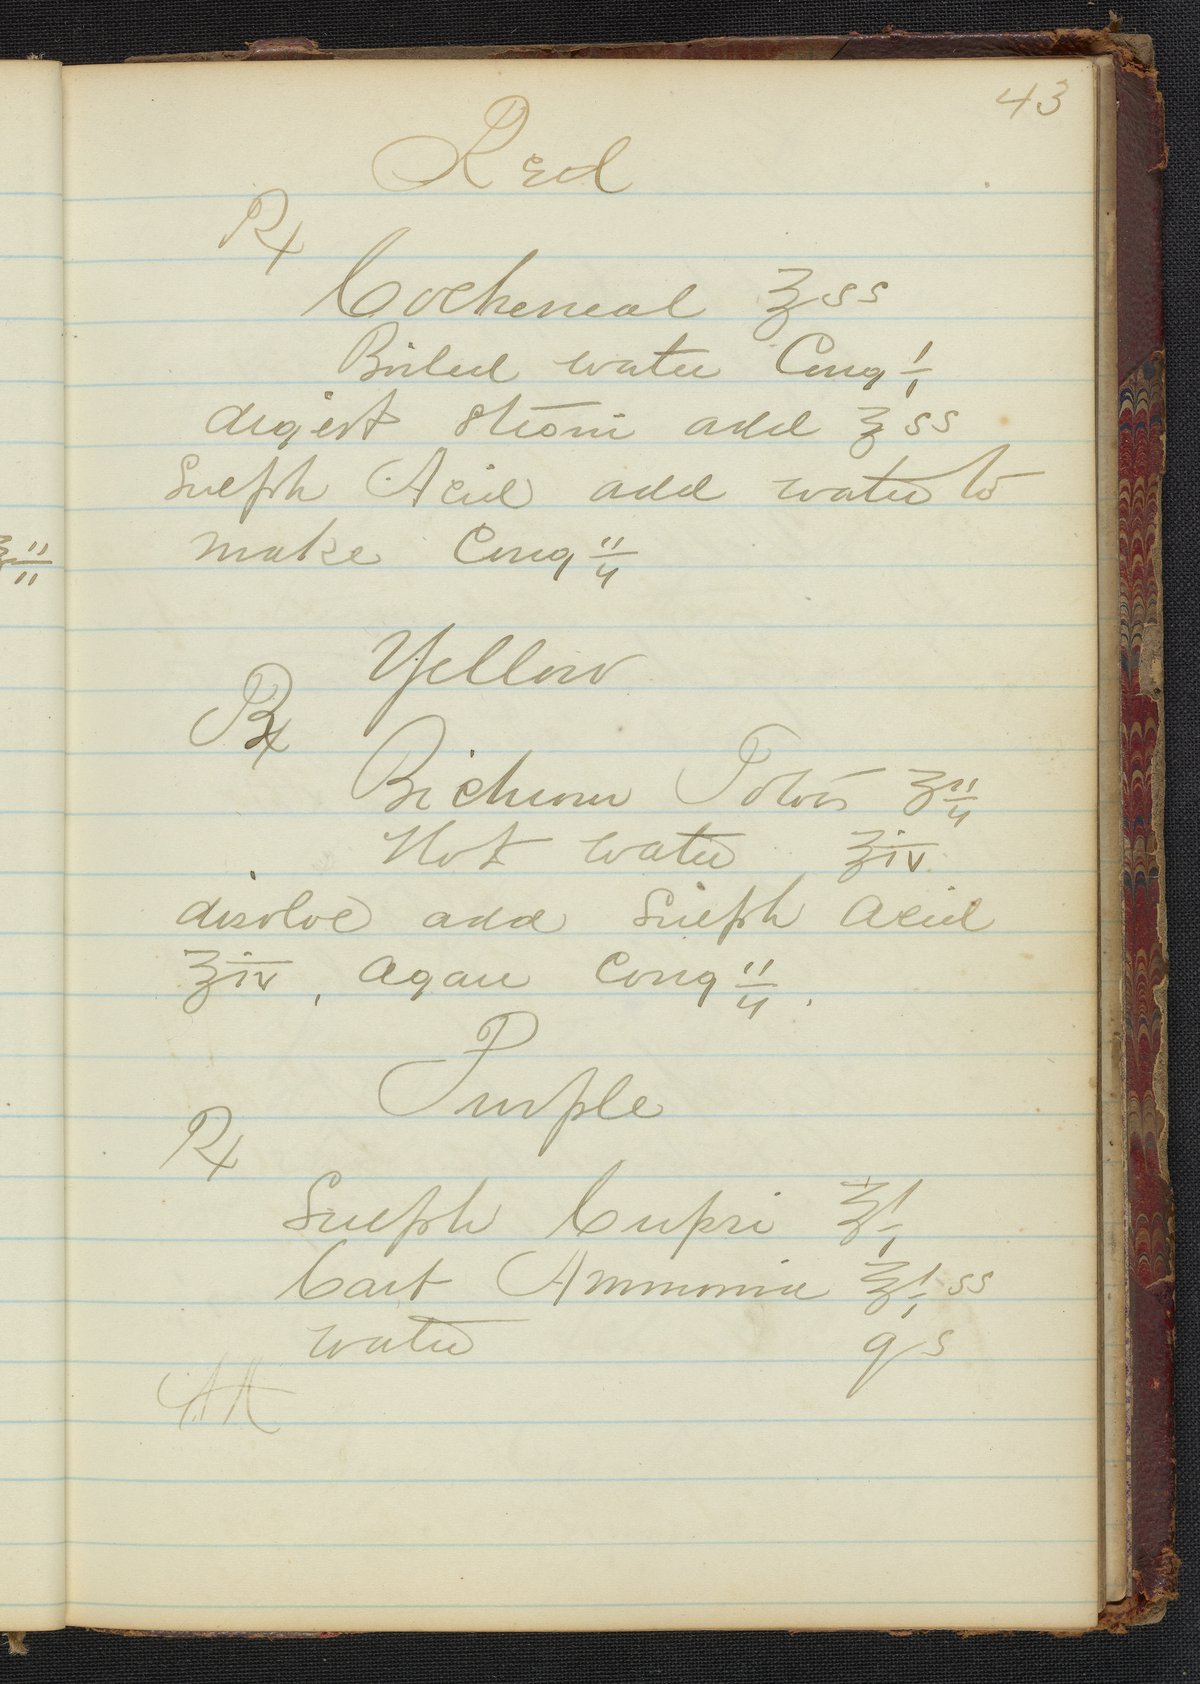 43
Red
Rx
Cocheneal ʒss
Boiled water Cong i
digest strain add ʒss
Sulph Acid add water to
make Cong ii
ʒii
Yellow
Rx
Bichrom Potass ʒii
Hot water ʒiv
disolve add Sulph Acid
ʒiv, Aquae Cong ii.
Purple
Rx
Sulph Cupri ℥i
Carb Ammonia ℥iss
water qs